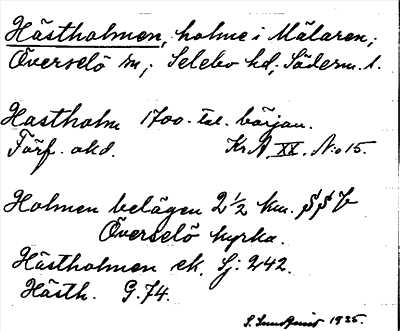 Hästholmen, holme i Mälaren;
Överselö sn; Selebo hd; Söderm. l.
Hastholm 1700-tal. början.
Förf. okd. KrA XX. No 15.
Holmen belägen 2 1/2 km. SSV
Överselö kyrka.
Hästholmen ek. Sj: 242.
Hästh. G. 74.
1935.